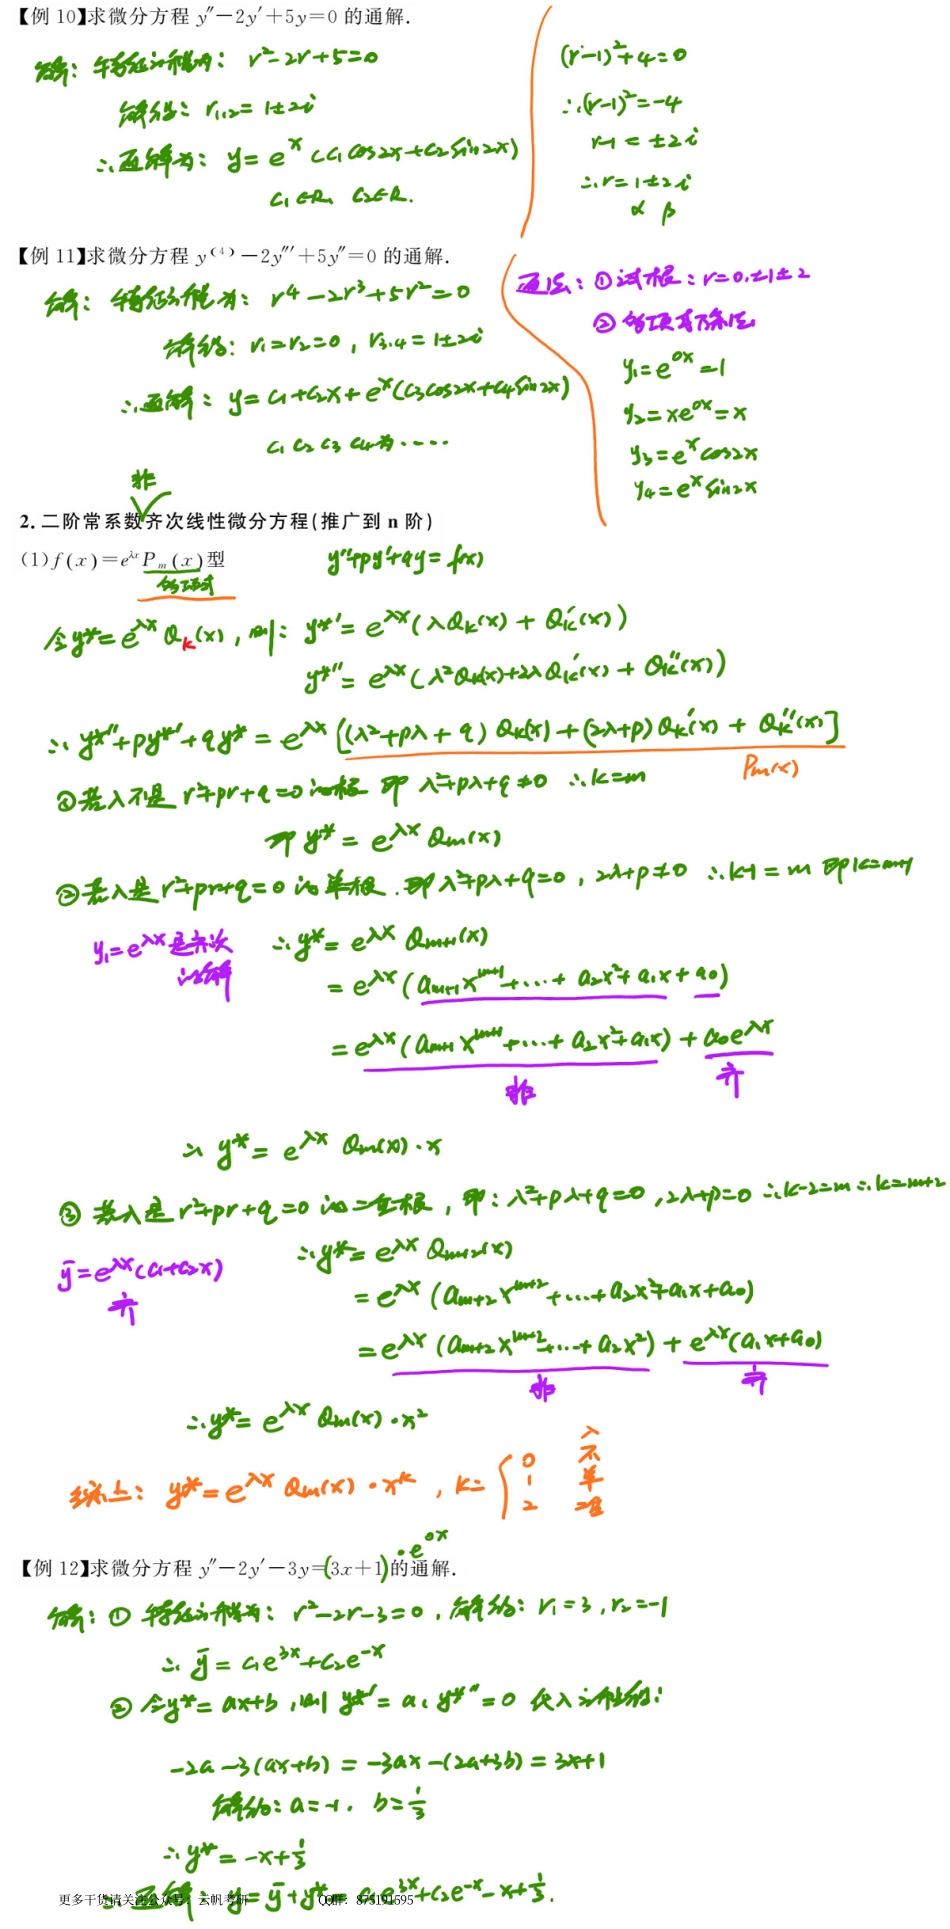 【例 10】求微分方程 y″－2y′＋5y＝0 的通解.
解：特征方程为：r²－2r＋5＝0
解得：r₁,₂＝1±2i
∴通解为：y＝eˣ(C₁cos2x＋C₂sin2x)
C₁∈R, C₂∈R.
(r－1)²＋4＝0
∴(r－1)²＝－4
r－1＝±2i
∴r＝1±2i
α β
【例 11】求微分方程 y⁽⁴⁾－2y‴＋5y″＝0 的通解.
解：特征方程为：r⁴－2r³＋5r²＝0
解得：r₁＝r₂＝0，r₃.₄＝1±2i
∴通解：y＝C₁＋C₂x＋eˣ(C₃cos2x＋C₄sin2x)
C₁ C₂ C₃ C₄为····
通法：①试根：r＝0,±1±2
②多项式除法
y₁＝e⁰ˣ＝1
y₂＝xe⁰ˣ＝x
y₃＝eˣcos2x
y₄＝eˣsin2x
非
2. 二阶常系数齐次线性微分方程(推广到 n 阶)
(1) f(x)＝e^{λx}P_m(x)型
多项式
y″＋py′＋qy＝f(x)
令y*＝e^{λx}Q_k(x)，则：y*′＝e^{λx}(λQ_k(x)＋Q_k′(x))
y*″＝e^{λx}(λ²Q_k(x)＋2λQ_k′(x)＋Q_k″(x))
∴y*″＋py*′＋qy*＝e^{λx}[(λ²＋pλ＋q)Q_k(x)＋(2λ＋p)Q_k′(x)＋Q_k″(x)]
P_m(x)
①若λ不是r²＋pr＋q＝0的根 即 λ²＋pλ＋q≠0 ∴k＝m
即 y*＝e^{λx}Q_m(x)
②若λ是r²＋pr＋q＝0的单根．即λ²＋pλ＋q＝0，2λ＋p≠0 ∴k－1＝m 即k＝m＋1
y₁＝e^{λx}是齐次
的解
∴y*＝e^{λx}Q_{m+1}(x)
＝e^{λx}(a_{m+1}x^{m+1}＋…＋a₂x²＋a₁x＋a₀)
＝e^{λx}(a_{m+1}x^{m+1}＋…＋a₂x²＋a₁x)＋a₀e^{λx}
非 齐
∴y*＝e^{λx}Q_m(x)·x
③若λ是r²＋pr＋q＝0的二重根，即：λ²＋pλ＋q＝0，2λ＋p＝0 ∴k－2＝m ∴k＝m＋2
ȳ＝e^{λx}(C₁＋C₂x)
齐
∴y*＝e^{λx}Q_{m+2}(x)
＝e^{λx}(a_{m+2}x^{m+2}＋…＋a₂x²＋a₁x＋a₀)
＝e^{λx}(a_{m+2}x^{m+2}＋…＋a₂x²)＋e^{λx}(a₁x＋a₀)
非 齐
∴y*＝e^{λx}Q_m(x)·x²
λ
综上：y*＝e^{λx}Q_m(x)·x^k，k＝{
0 不
1 单
2 二重
·e⁰ˣ
【例 12】求微分方程 y″－2y′－3y＝(3x＋1)的通解.
解：①特征方程为：r²－2r－3＝0，解得：r₁＝3，r₂＝－1
∴ȳ＝C₁e³ˣ＋C₂e⁻ˣ
②令y*＝ax＋b，则y*′＝a，y*″＝0 代入方程得：
－2a－3(ax＋b)＝－3ax－(2a＋3b)＝3x＋1
解得：a＝－1．b＝1/3
∴y*＝－x＋1/3
∴通解：y＝ȳ＋y*＝C₁e³ˣ＋C₂e⁻ˣ－x＋1/3.
更多干货请关注公众号：云帆考研 QQ群：875191595